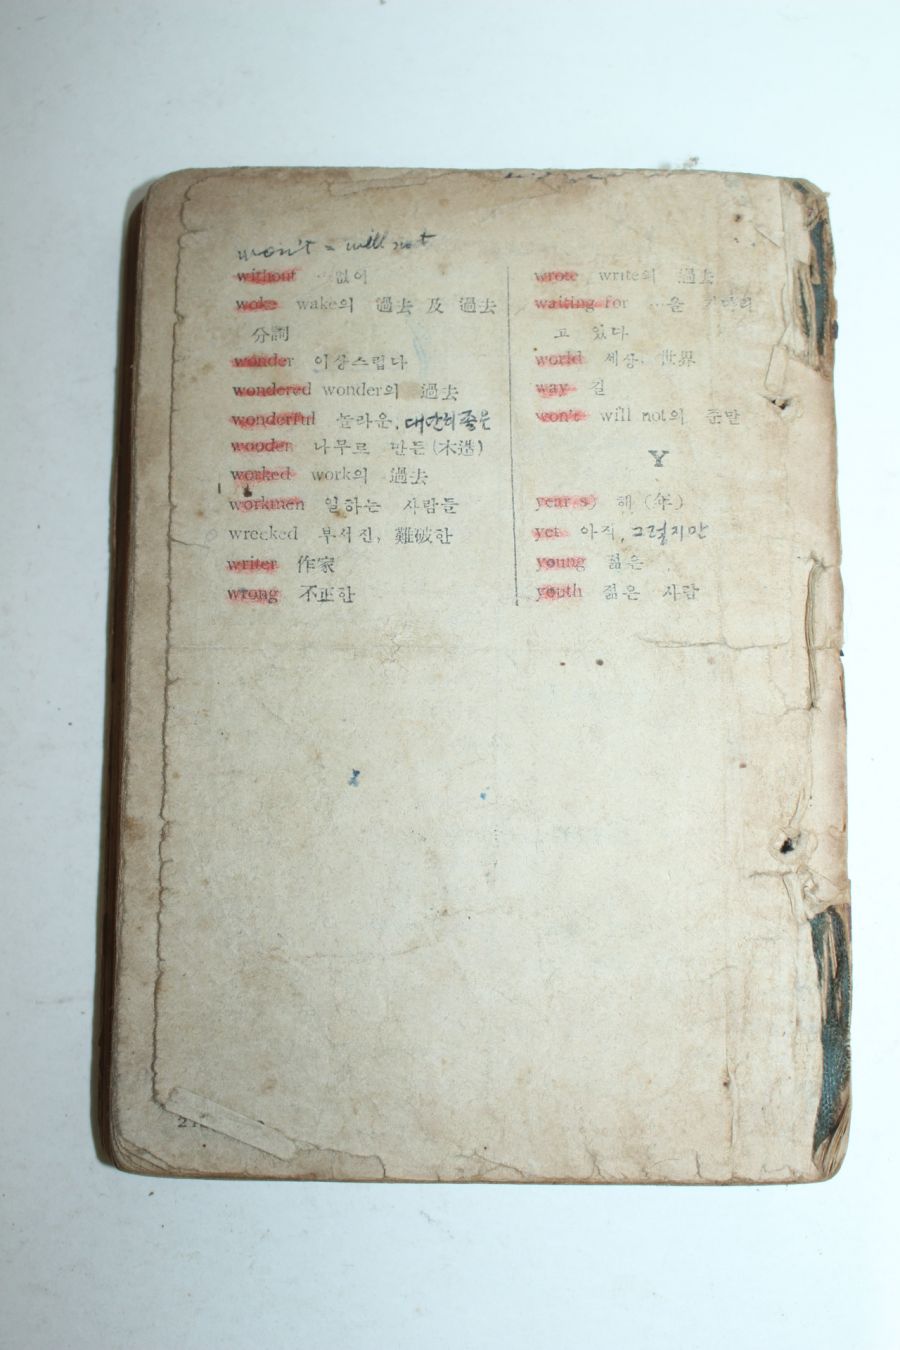 won't = will not
without …없이
woke wake의 過去 及 過去
分詞
wonder 이상스럽다
wondered wonder의 過去
wonderful 놀라운, 대단히 좋은
wooden 나무로 만든(木造)
worked work의 過去
workmen 일하는 사람들
wrecked 부서진, 難破한
writer 作家
wrong 不正한
wrote write의 過去
waiting for …을 기다리
고 있다
world 세상, 世界
way 길
won't will not의 준말
Y
year(s) 해(年)
yet 아직, 그렇지만
young 젊은
youth 젊은 사람